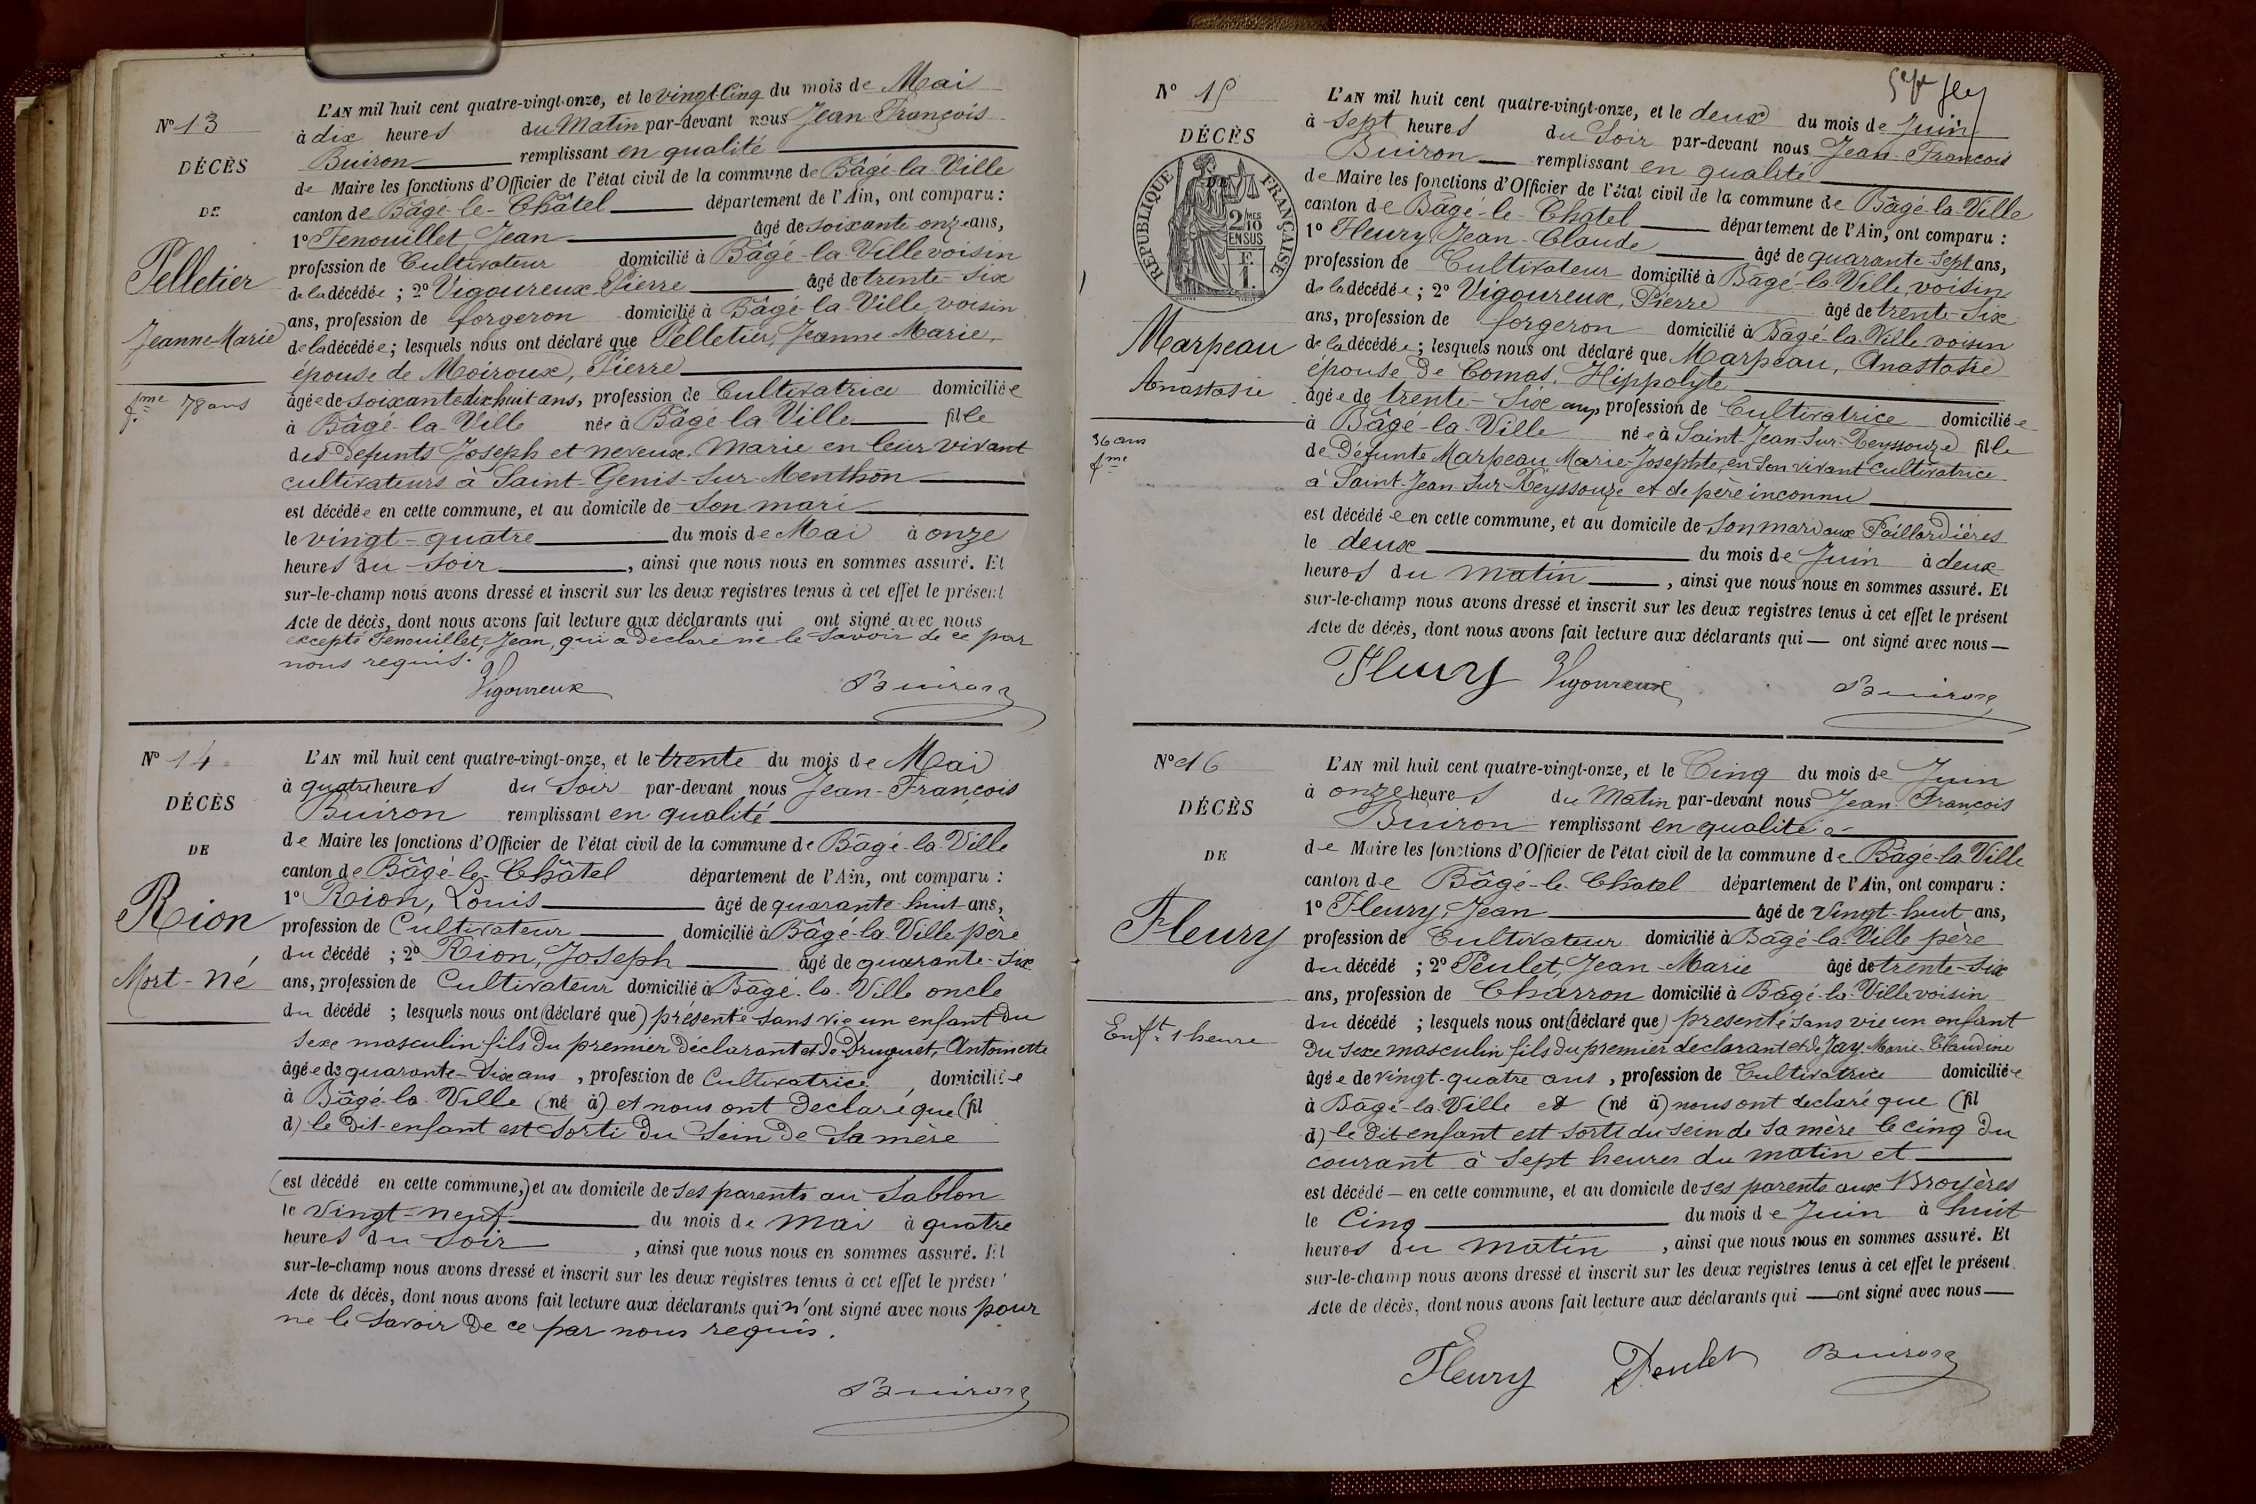 N° 13
DÉCÈS
DE
Pelletier
Jeanne-Marie
fme 78 ans
L'AN mil huit cent quatre-vingt-onze, et le vingt-Cinq du mois de Mai
à dix heures du Matin par-devant nous Jean François
Buiron remplissant en qualité
de Maire les fonctions d'Officier de l'état civil de la commune de Bâgé-la-Ville
canton de Bâgé-le-Châtel département de l'Ain, ont comparu :
1° Fenouillet, Jean âgé de soixante onze ans,
profession de Cultivateur domicilié à Bâgé-la-Ville voisin
de la décédée ; 2° Vigoureux Pierre âgé de trente-six
ans, profession de forgeron domicilié à Bâgé-la-Ville, voisin
de la décédée ; lesquels nous ont déclaré que Pelletier, Jeanne Marie,
épouse de Moiroux, Pierre
âgée de soixante dix huit ans, profession de Cultivatrice domiciliée
à Bâgé-la-Ville née à Bâgé la Ville fille
des défunts Joseph et neveux, Marie en leur vivant
cultivateurs à Saint-Genis-sur-Menthon
est décédée en cette commune, et au domicile de son mari
le vingt-quatre du mois de Mai à onze
heures du soir, ainsi que nous nous en sommes assuré. Et
sur-le-champ nous avons dressé et inscrit sur les deux registres tenus à cet effet le présent
Acte de décès, dont nous avons fait lecture aux déclarants qui ont signé avec nous
excepté Fenouillet, Jean, qui a déclaré ne le savoir de ce par
nous requis.
Vigoureux Buiron
N° 14
DÉCÈS
DE
Rion
Mort-né
L'AN mil huit cent quatre-vingt-onze, et le trente du mois de Mai
à quatre heures du Soir par-devant nous Jean-François
Buiron remplissant en qualité
de Maire les fonctions d'Officier de l'état civil de la commune de Bâgé-la-Ville
canton de Bâgé-le-Châtel département de l'Ain, ont comparu :
1° Rion, Louis âgé de quarante-huit ans,
profession de Cultivateur domicilié à Bâgé-la-Ville père
du décédé ; 2° Rion, Joseph âgé de quarante-six
ans, profession de Cultivateur domicilié à Bâgé-la-Ville oncle
du décédé ; lesquels nous ont (déclaré que) présenté sans vie un enfant du
sexe masculin fils du premier déclarant et de Druguet, Antoinette
âgée de quarante-dix ans, profession de Cultivatrice, domiciliée
à Bâgé-la-Ville (né à) et nous ont déclaré que (fil
d) le dit enfant est sorti du sein de sa mère
(est décédé en cette commune,) et au domicile de ses parents au Sablon
le vingt-neuf du mois de mai à quatre
heures du soir, ainsi que nous nous en sommes assuré. Et
sur-le-champ nous avons dressé et inscrit sur les deux registres tenus à cet effet le présent
Acte de décès, dont nous avons fait lecture aux déclarants qui n'ont signé avec nous pour
ne le savoir de ce par nous requis.
Buiron
N° 15
DÉCÈS
DE
RÉPUBLIQUE FRANÇAISE
2/10 MES
EN SUS
F.
1.
Marpeau
Anastasie
36 ans
fme
L'AN mil huit cent quatre-vingt-onze, et le deux du mois de Juin
à sept heures du Soir par-devant nous Jean-François
Buiron remplissant en qualité
de Maire les fonctions d'Officier de l'état civil de la commune de Bâgé-la-Ville
canton de Bâgé-le-Châtel département de l'Ain, ont comparu :
1° Fleury, Jean-Claude âgé de quarante-sept ans,
profession de Cultivateur domicilié à Bâgé-la-Ville, voisin
de la décédée ; 2° Vigoureux, Pierre âgé de trente-six
ans, profession de forgeron domicilié à Bâgé-la-Ville voisin
de la décédée ; lesquels nous ont déclaré que Marpeau, Anastasie
épouse de Comas, Hippolyte
âgée de trente-six ans, profession de Cultivatrice domiciliée
à Bâgé-la-Ville née à Saint-Jean-sur-Reyssouze fille
de Défunte Marpeau Marie-Josephte, en son vivant cultivatrice
à Saint-Jean-sur-Reyssouze et de père inconnu
est décédée en cette commune, et au domicile de son mari aux Paillardières
le deux du mois de Juin à deux
heures du matin, ainsi que nous nous en sommes assuré. Et
sur-le-champ nous avons dressé et inscrit sur les deux registres tenus à cet effet le présent
Acte de décès, dont nous avons fait lecture aux déclarants qui — ont signé avec nous —
Fleury Vigoureux Buiron
N° 16
DÉCÈS
DE
Fleury
Enft 1 heure
L'AN mil huit cent quatre-vingt-onze, et le Cinq du mois de Juin
à onze heures du Matin par-devant nous Jean-François
Buiron remplissant en qualité
de Maire les fonctions d'Officier de l'état civil de la commune de Bâgé-la-Ville
canton de Bâgé-le-Châtel département de l'Ain, ont comparu :
1° Fleury, Jean âgé de vingt-huit ans,
profession de Cultivateur domicilié à Bâgé-la-Ville père
du décédé ; 2° Peulet, Jean-Marie âgé de trente-six
ans, profession de Charron domicilié à Bâgé-la-Ville voisin
du décédé ; lesquels nous ont (déclaré que) présenté sans vie un enfant
du sexe masculin fils du premier déclarant et de Jay, Marie-Claudine
âgée de vingt-quatre ans, profession de Cultivatrice domiciliée
à Bâgé-la-Ville et (né à) nous ont déclaré que (fil
d) le dit enfant est sorti du sein de sa mère le cinq du
courant à sept heures du matin et
est décédé — en cette commune, et au domicile de ses parents aux Broyères
le Cinq du mois de Juin à huit
heures du matin, ainsi que nous nous en sommes assuré. Et
sur-le-champ nous avons dressé et inscrit sur les deux registres tenus à cet effet le présent
Acte de décès, dont nous avons fait lecture aux déclarants qui — ont signé avec nous —
Fleury Peulet Buiron